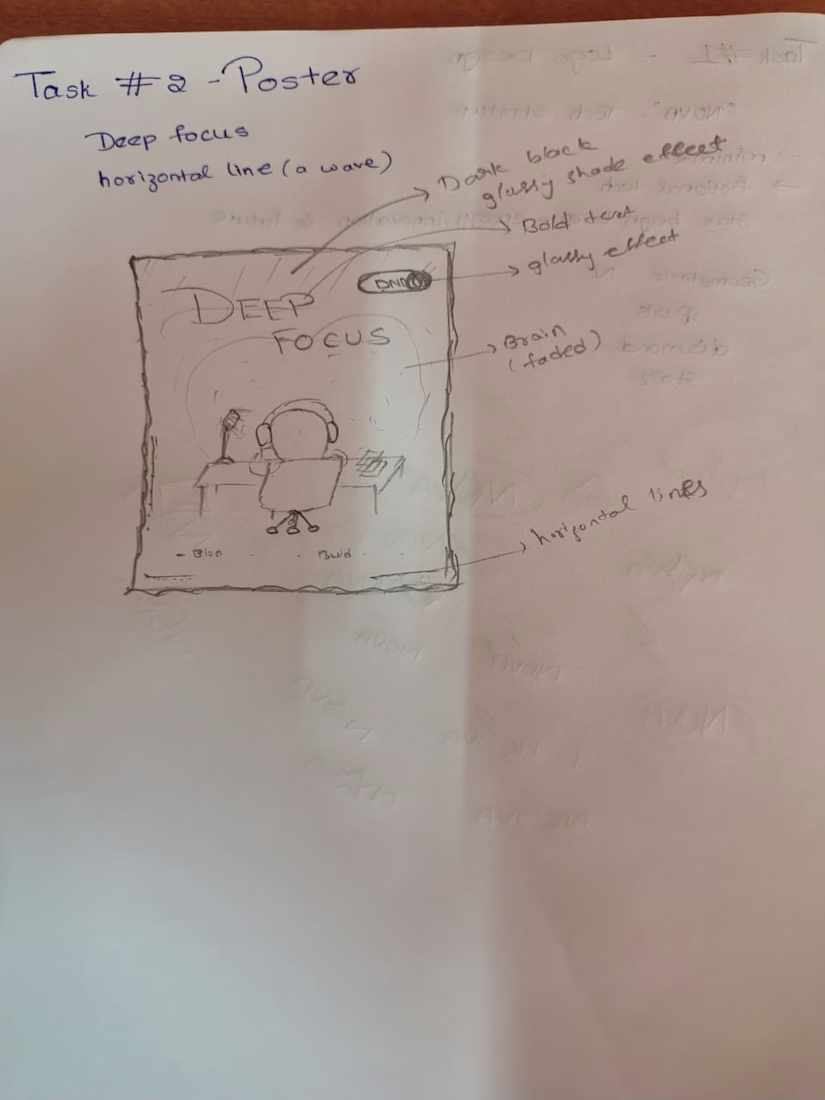 Task #2 - Poster
Deep focus
horizontal line (a wave)
Dark black
glassy shade effect
Bold text
glassy effect
DND
DEEP
FOCUS
Brain
(faded)
horizontal lines